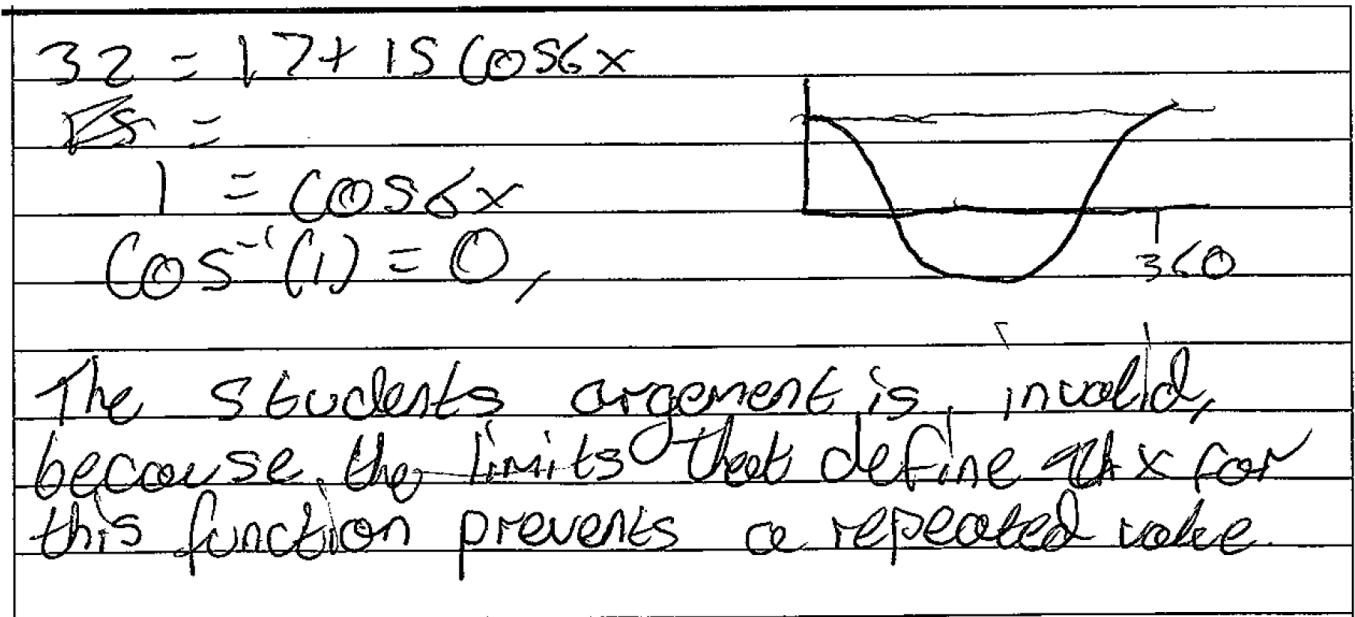 32 = 17+ 15 cos6x
15 =
1 = cos6x
cos⁻¹(1) = 0,
360
The students argement is invalid,
because the limits that define x for
this function prevents a repeated value.